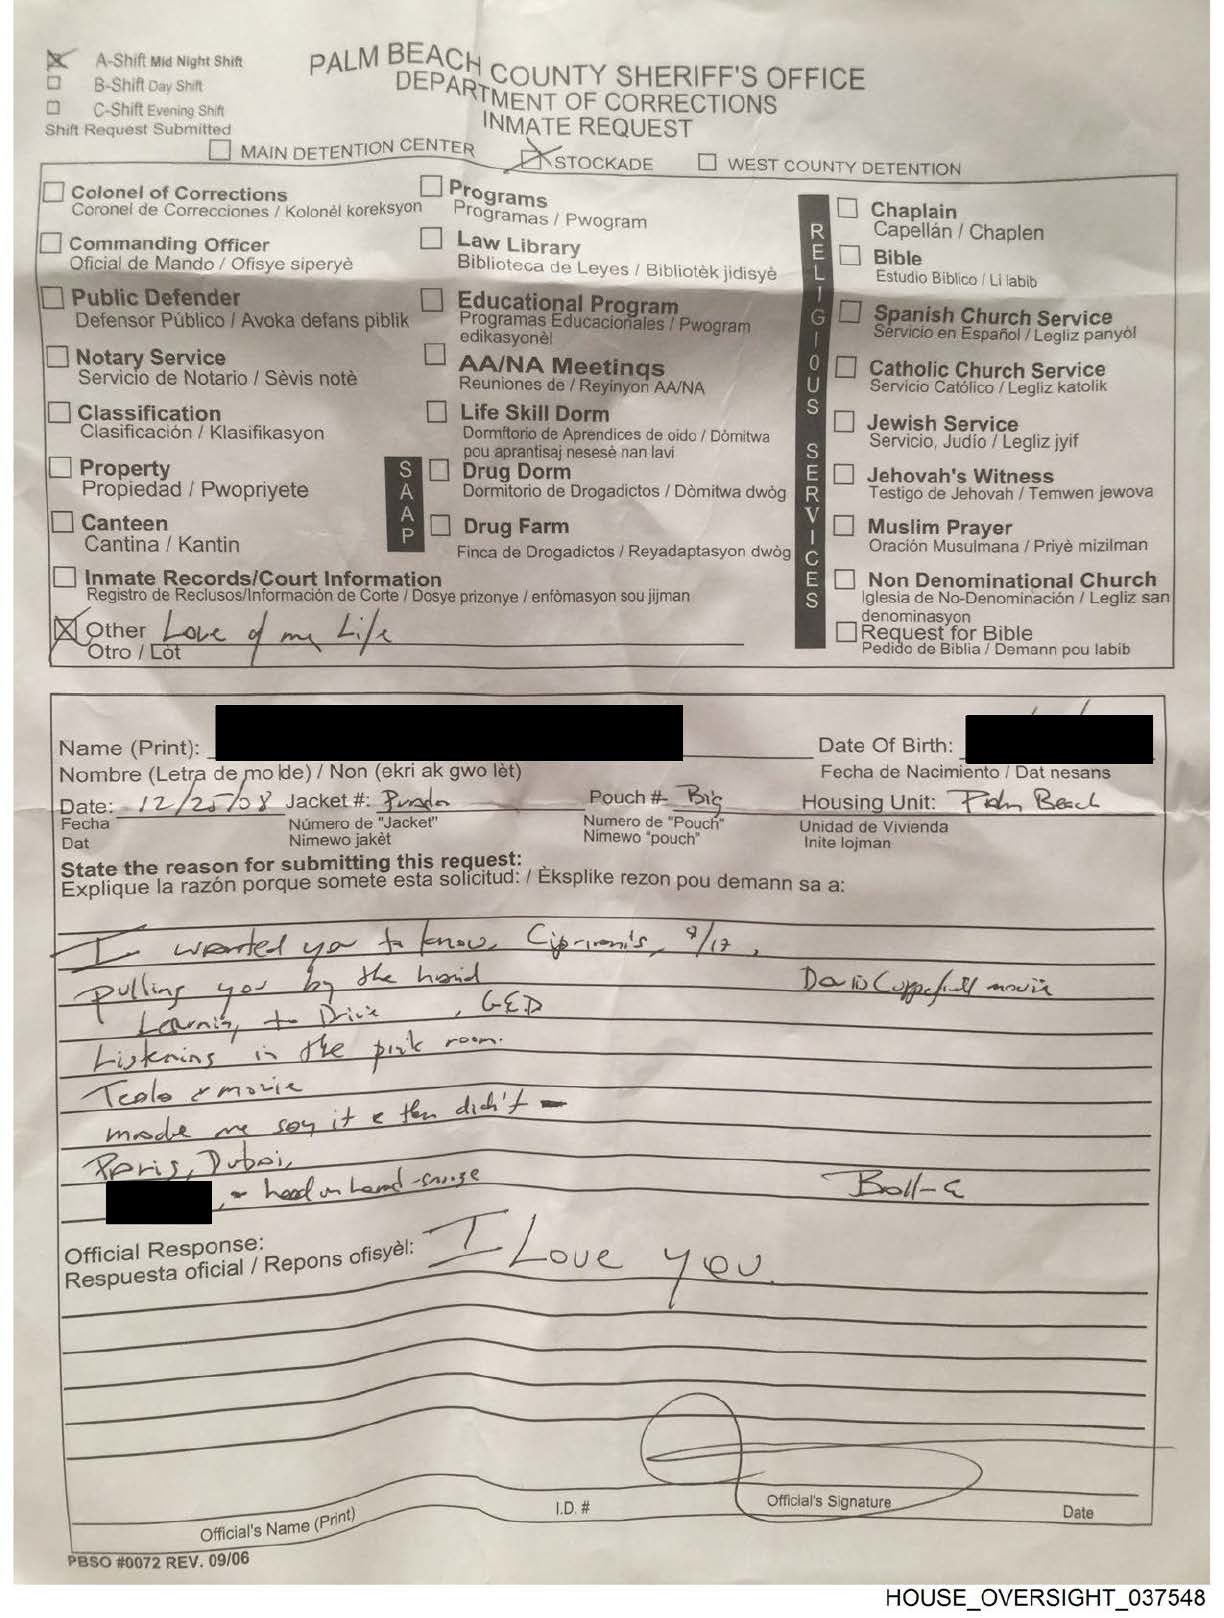 A-Shift Mid Night Shift
B-Shift Day Shift
C-Shift Evening Shift
Shift Request Submitted
PALM BEACH COUNTY SHERIFF'S OFFICE
DEPARTMENT OF CORRECTIONS
INMATE REQUEST
MAIN DETENTION CENTER STOCKADE WEST COUNTY DETENTION
Colonel of Corrections
Coronel de Correcciones / Kolonèl koreksyon
Commanding Officer
Oficial de Mando / Ofisye siperyè
Public Defender
Defensor Público / Avoka defans piblik
Notary Service
Servicio de Notario / Sèvis notè
Classification
Clasificación / Klasifikasyon
Property
Propiedad / Pwopriyete
Canteen
Cantina / Kantin
Inmate Records/Court Information
Registro de Reclusos/Información de Corte / Dosye prizonye / enfòmasyon sou jijman
Other Love of my Life
Otro / Lòt
Programs
Programas / Pwogram
Law Library
Biblioteca de Leyes / Bibliotèk jidisyè
Educational Program
Programas Educacionales / Pwogram
edikasyonèl
AA/NA Meetings
Reuniones de / Reyinyon AA/NA
Life Skill Dorm
Dormitorio de Aprendices de oido / Dòmitwa
pou aprantisaj nesesè nan lavi
SAAP
Drug Dorm
Dormitorio de Drogadictos / Dòmitwa dwòg
Drug Farm
Finca de Drogadictos / Reyadaptasyon dwòg
RELIGIOUS SERVICES
Chaplain
Capellán / Chaplen
Bible
Estudio Biblico / Li labib
Spanish Church Service
Servicio en Español / Legliz panyòl
Catholic Church Service
Servicio Católico / Legliz katolik
Jewish Service
Servicio, Judío / Legliz jyif
Jehovah's Witness
Testigo de Jehovah / Temwen jewova
Muslim Prayer
Oración Musulmana / Priyè mizilman
Non Denominational Church
Iglesia de No-Denominación / Legliz san
denominasyon
Request for Bible
Pedido de Biblia / Demann pou labib
Name (Print): Date Of Birth:
Nombre (Letra de molde) / Non (ekri ak gwo lèt) Fecha de Nacimiento / Dat nesans
Date: 12/25/08 Jacket #: Prada Pouch # Big Housing Unit: Palm Beach
Fecha Número de "Jacket" Numero de "Pouch" Unidad de Vivienda
Dat Nimewo jakèt Nimewo "pouch" Inite lojman
State the reason for submitting this request:
Explique la razón porque somete esta solicitud: / Èksplike rezon pou demann sa a:
I wanted you to know, Cipriani's, 8/17,
pulling you by the hand David Coppefield movie
Learning to Drive, GED
Listening in the pink room.
movie
made me say it & then didn't -
Paris, Dubai,
head on hand - Ball-E
Official Response: I Love you.
Respuesta oficial / Repons ofisyèl:
Official's Name (Print) I.D. # Official's Signature Date
PBSO #0072 REV. 09/06
HOUSE_OVERSIGHT_037548